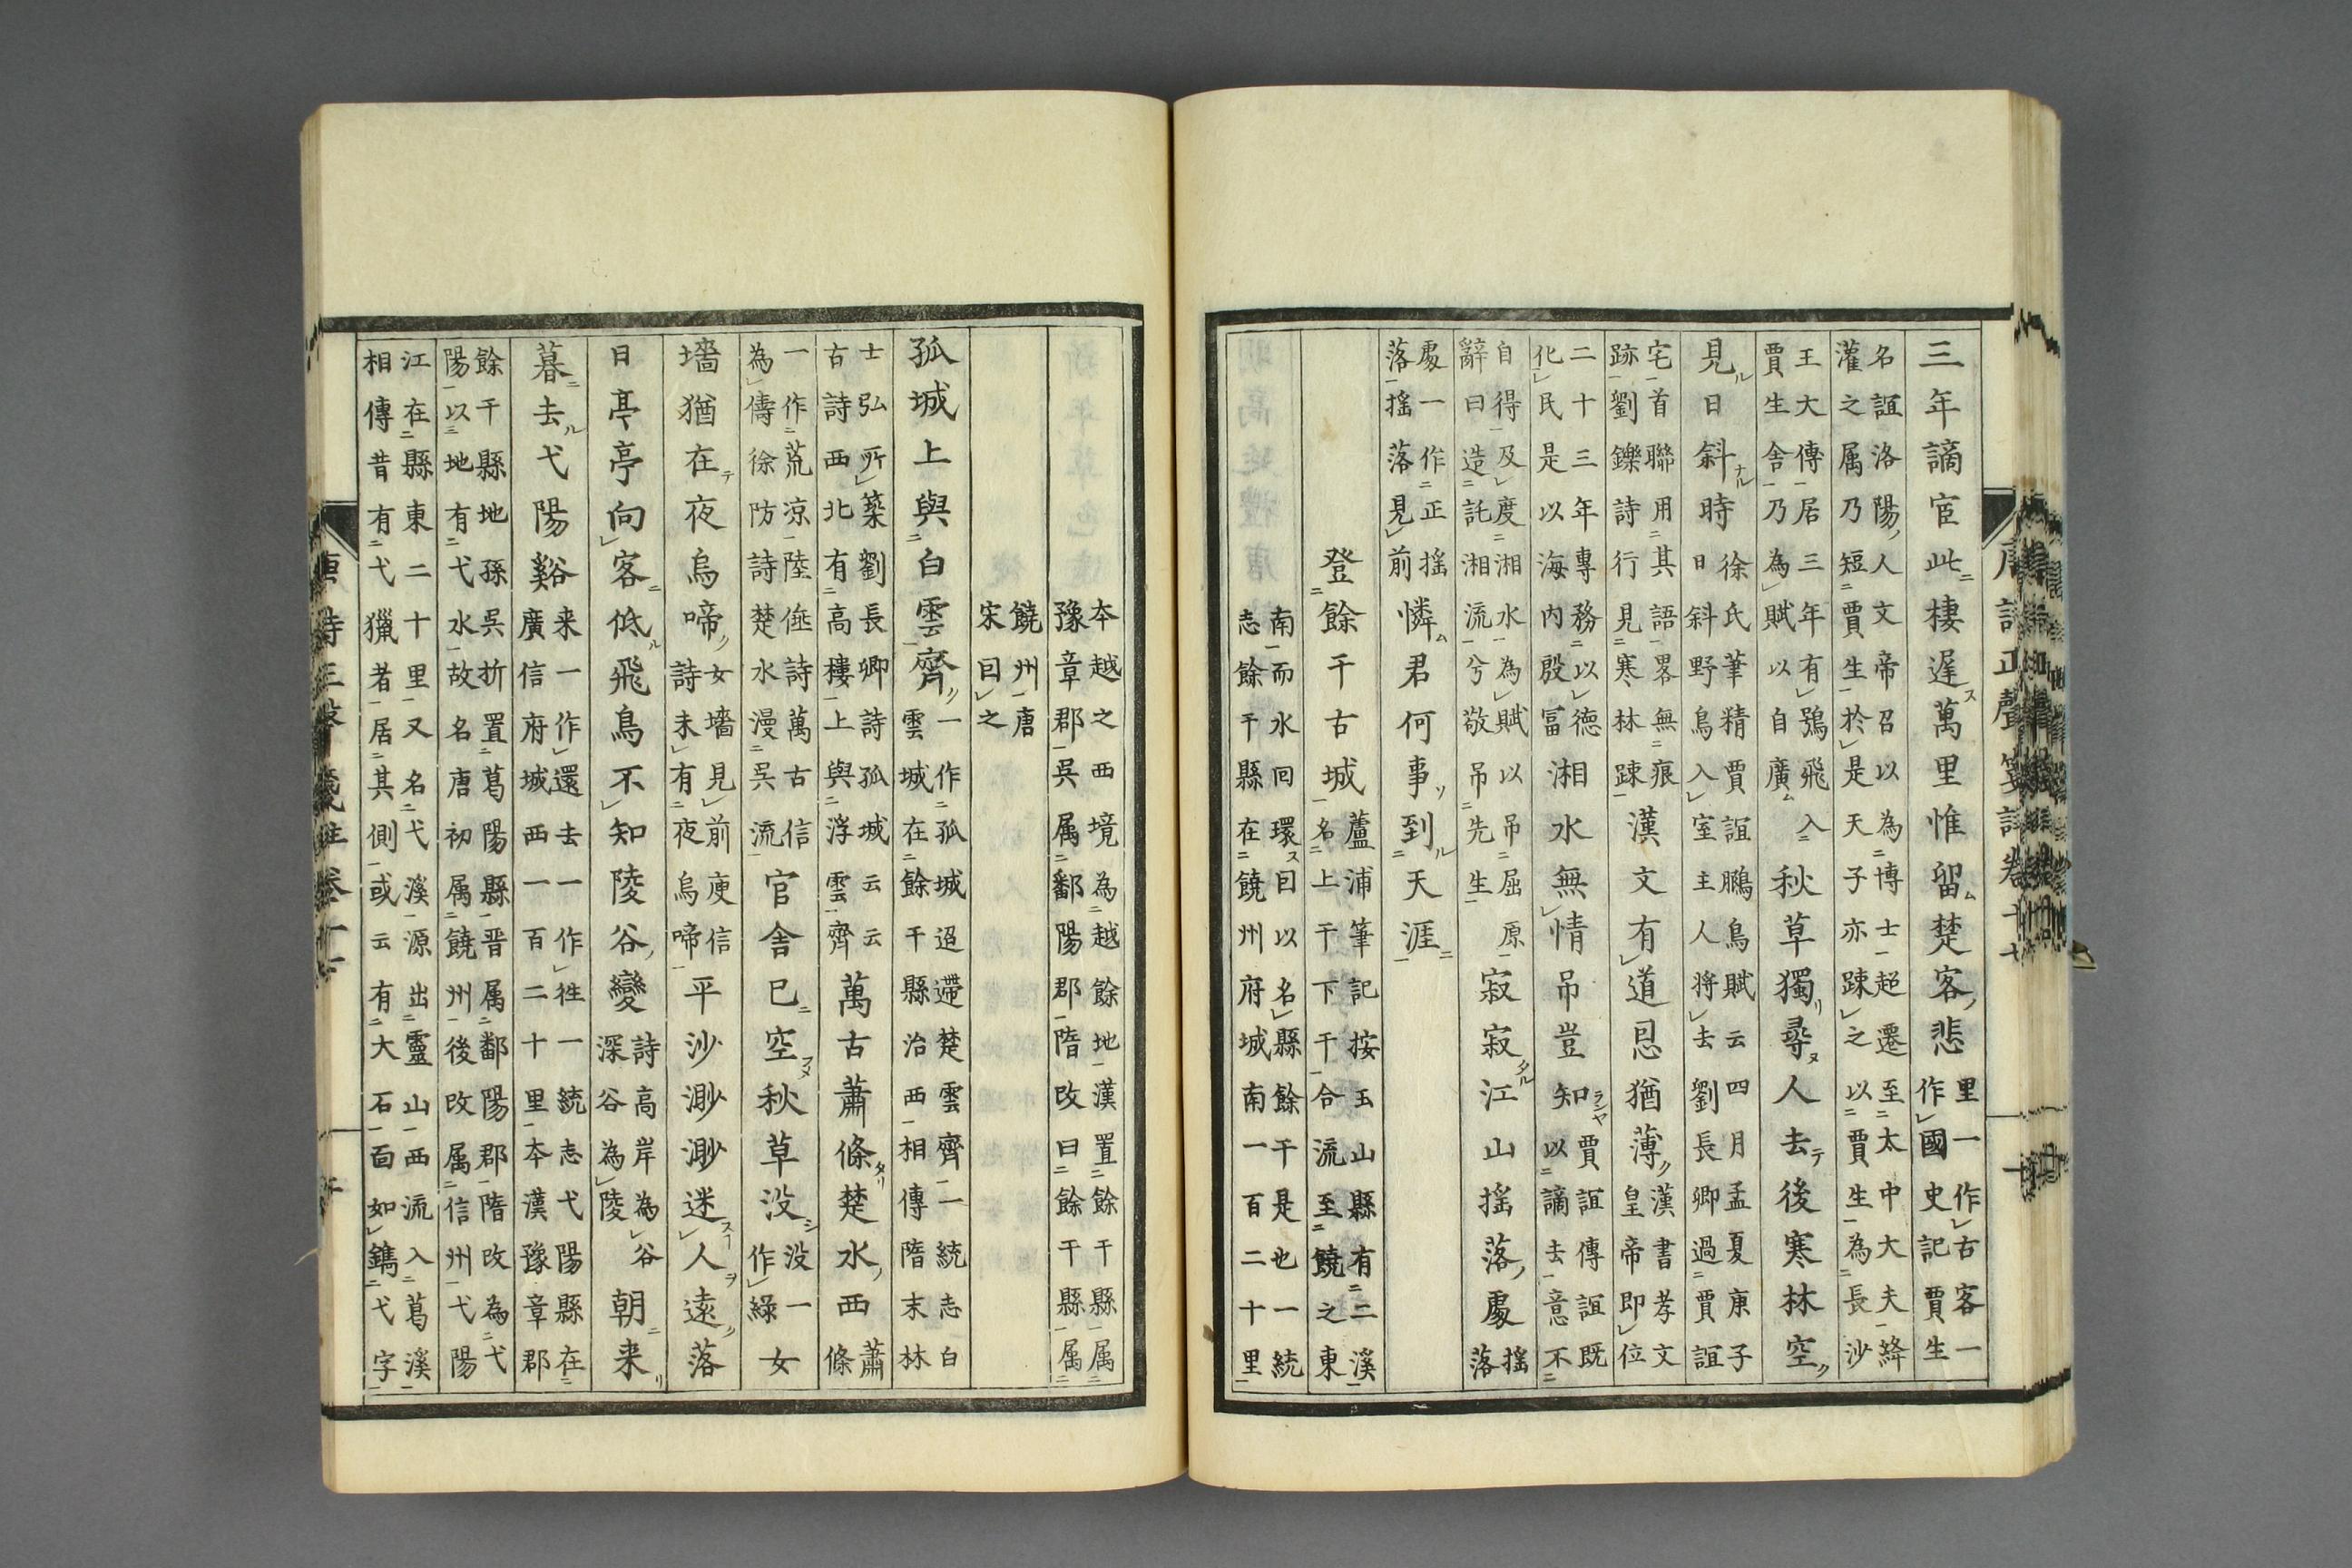 三年謫宦此棲遲萬里惟留楚客悲里一作古客一作國史記賈生
名誼洛陽人文帝召以為博士超遷至太中大夫絳
灌之属乃短賈生於是天子亦踈之以賈生為長沙
王大傳居三年有鴞飛入賈生舍乃為賦以自廣秋草獨尋人去後寒林空
見日斜時徐氏筆精賈誼鵬鳥賦云四月孟夏庚子日斜野鳥入室主人將去劉長卿過賈誼
宅首聯用其語畧無痕跡劉鑠詩行見寒林踈漢文有道恩猶薄漢書孝文皇帝即位
二十三年專務以德化民是以海内殷冨湘水無情吊豈知賈誼傳誼既以謫去意不
自得及度湘水為賦以吊屈原辭曰造託湘流兮敬吊先生寂寂江山搖落處搖落
處一作正搖落搖落見前憐君何事到天涯
登餘干古城蘆浦筆記按玉山縣有二溪名上干下干合流至饒之東
南而水囘環曰以名縣餘干是也一統
志餘干縣在饒州府城南一百二十里
唐詩正聲箋註卷十
本越之西境為越餘地漢置餘干縣属
豫章郡吳属鄱陽郡隋改曰餘干縣属
饒州唐宋曰之
孤城上與白雲齊一作孤城迢遰楚雲齊一統志白雲城在餘干縣治西相傳隋末林
士弘所築劉長卿詩孤城云云古詩西北有高樓上與浮雲齊萬古蕭條楚水西蕭條
一作荒涼陸倕詩萬古信為儔徐防詩楚水漫吳流官舍已空秋草没没一作綠女
墻猶在夜烏啼女墻見前庾信詩未有夜烏啼平沙渺渺迷人遠落
日亭亭向客低飛鳥不知陵谷變詩高岸為谷深谷為陵朝来
暮去弋陽谿来一作還去一作徃一統志弋陽縣在廣信府城西一百二十里本漢豫章郡
餘干縣地孫吳折置葛陽縣晋属鄱陽郡隋改為弋
陽以地有弋水故名唐初属饒州後改属信州弋陽
江在縣東二十里又名弋溪源出靈山西流入葛溪
相傳昔有弋獵者居其側或云有大石面如鐫弋字